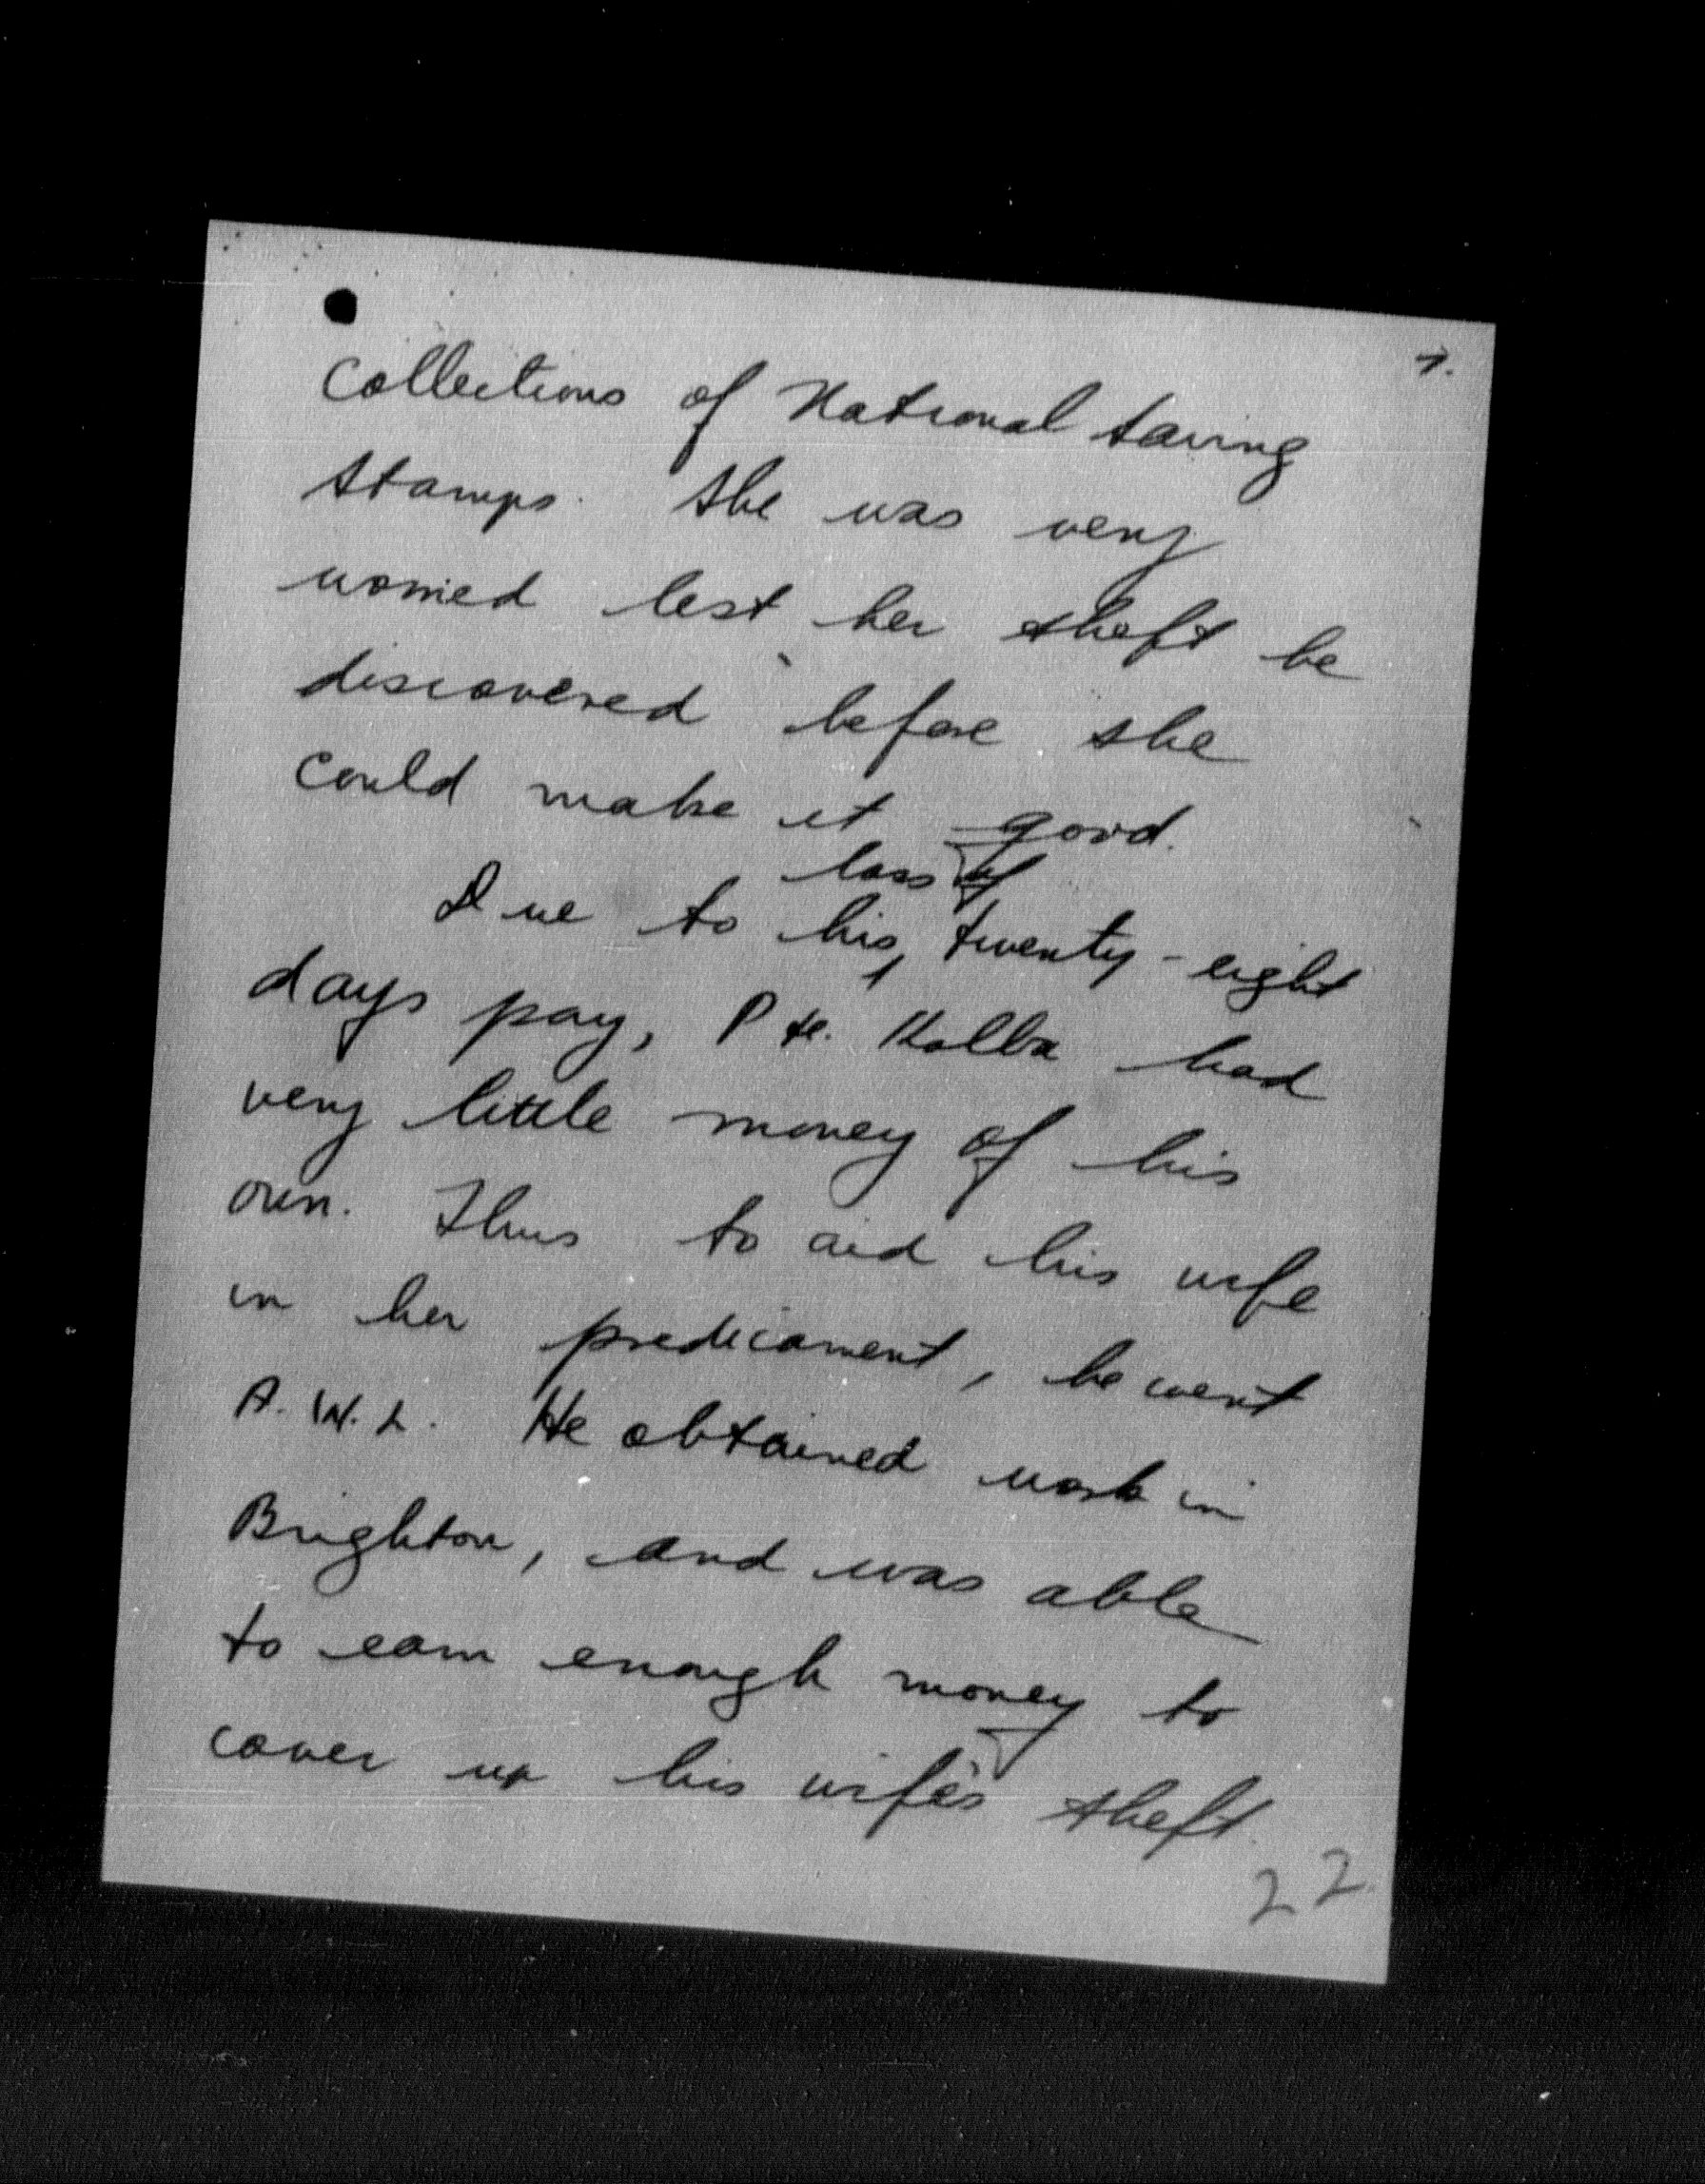 7.
collections of National Saving
Stamps. She was very
worried lest her theft be
discovered before she
could make it good.
loss of
Due to his twenty-eight
days pay, Pte. Kolba had
very little money of his
own. Thus to aid his wife
in her predicament, he went
A.W.L. He obtained work in
Brighton, and was able
to earn enough money to
cover up his wife's theft.
22